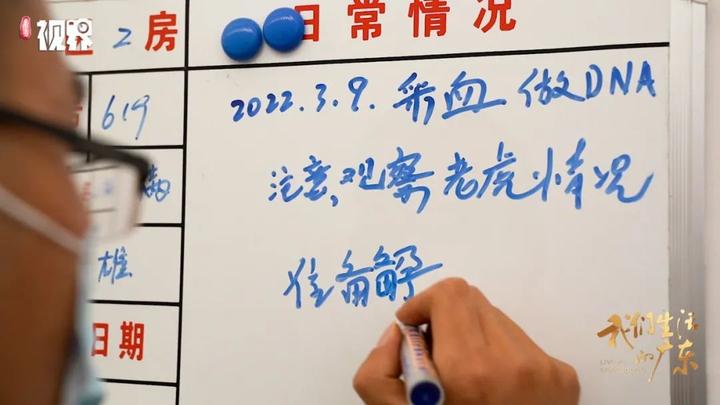 视界
2 房
日常情况
619
2022.3.9. 采血 做DNA
注意,观察老虎情况
雄
准备
日期
我们生活
的广东